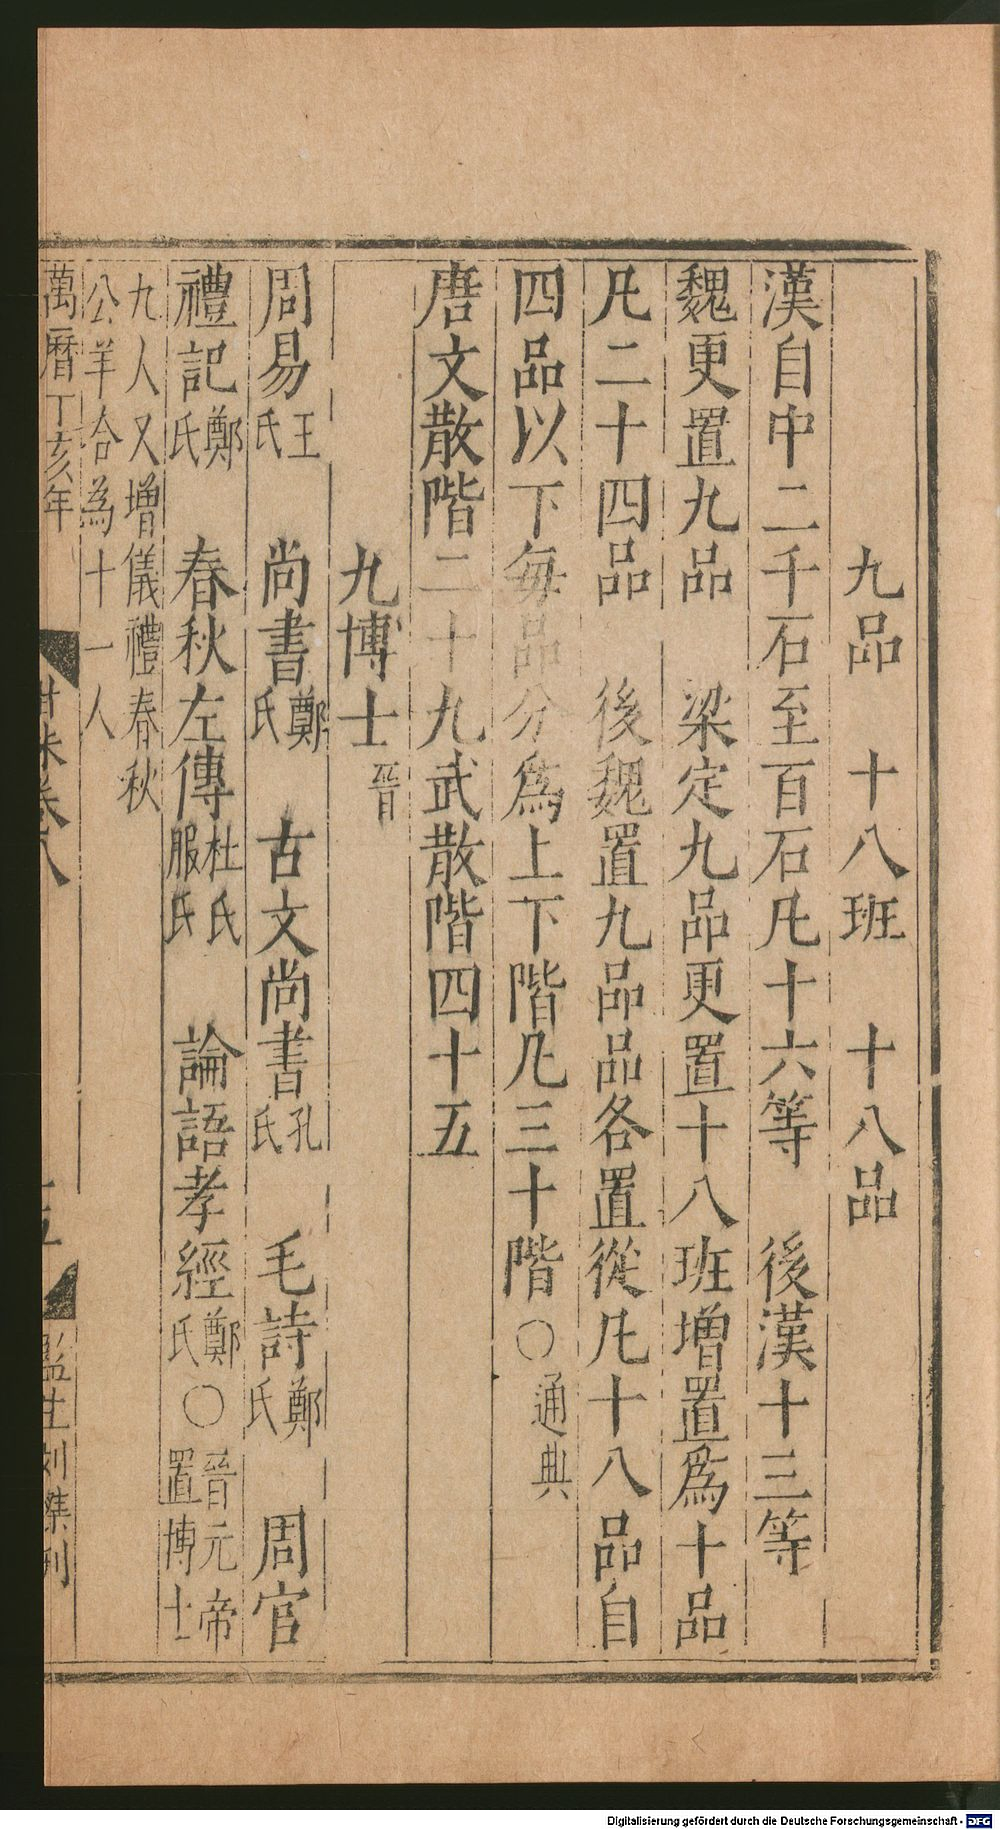 九品　十八班　十八品
漢自中二千石至百石凡十六等　後漢十三等
魏更置九品　梁定九品更置十八班增置為十品
凡二十四品　後魏置九品品各置從凡十八品自
四品以下每品分為上下階凡三十階○通典
唐文散階二十九武散階四十五
九博士晉
周易王氏　尚書鄭氏　古文尚書孔氏　毛詩鄭氏　周官
禮記鄭氏　春秋左傳杜氏服氏　論語孝經鄭氏○晉元帝置博士
九人又增儀禮春秋
公羊合為十一人
萬曆丁亥年　卷八　監生刘
Digitalisierung gefördert durch die Deutsche Forschungsgemeinschaft - DFG